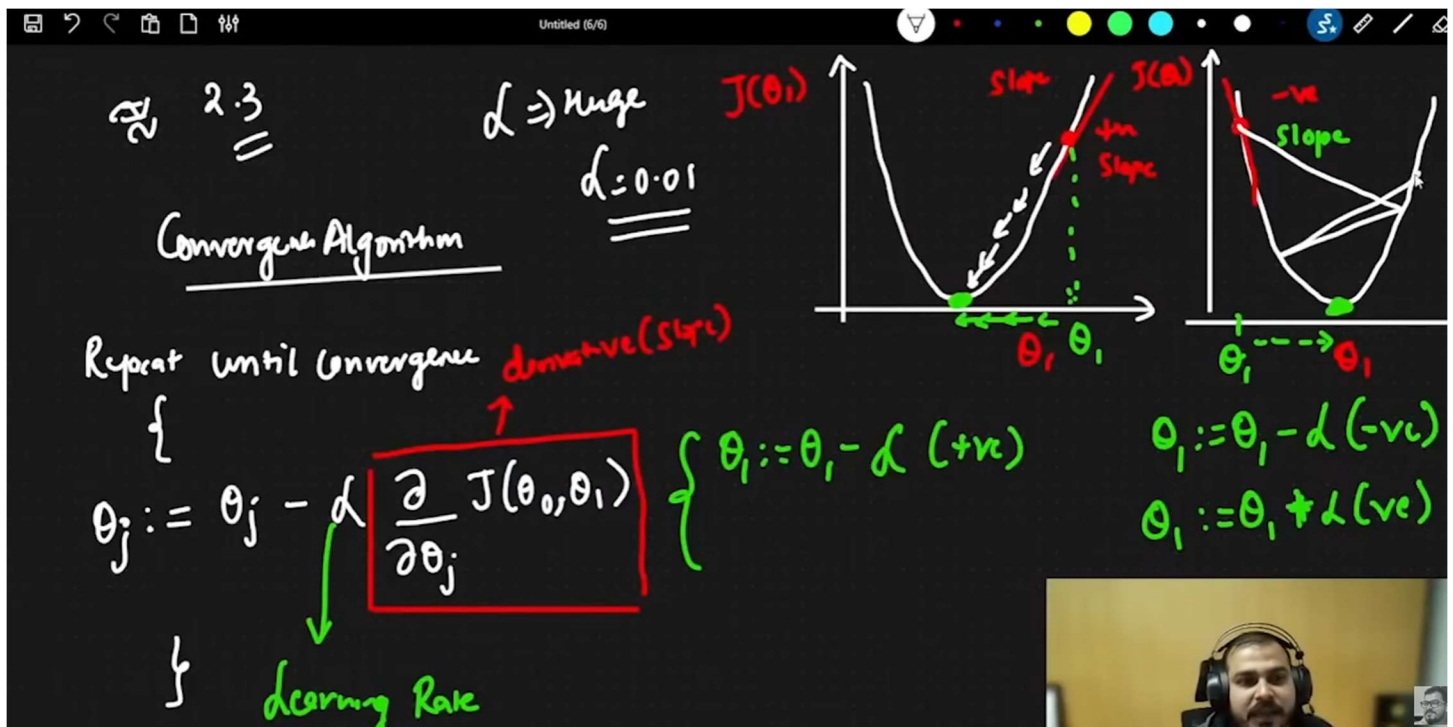 Untitled (6/6)
≈ 2.3
α ⇒ Huge
α = 0.01
Convergence Algorithm
Repeat until convergence
{
θj := θj - α ∂/∂θj J(θ0, θ1)
}
derivative (slope)
Learning Rate
J(θ1)
slope
+ve
slope
θ1 θ1
J(θ1)
-ve
slope
θ1 θ1
{ θ1 := θ1 - α (+ve)
θ1 := θ1 - α (-ve)
θ1 := θ1 + α (ve)